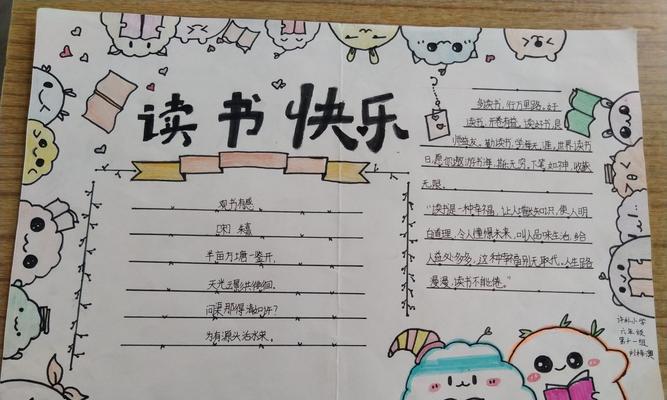 读书快乐
观书有感
[宋]朱熹
半亩方塘一鉴开,
天光云影共徘徊.
问渠那得清如许?
为有源头活水来.
多读书,行万里路.好
读书,开卷有益.读好书,良
师益友。勤读书,学海无涯.世界读书
日,愿你遨游书海,其乐无穷.下笔如神,收获
无限.
"读书是一种幸福,让人增长知识,使人明
白道理,令人憧憬未来,叫人品味生活,给
人益处多多,这种幸福别无取代.人生路
漫漫,读书不能倦."
许社小学
六年级
第十一组